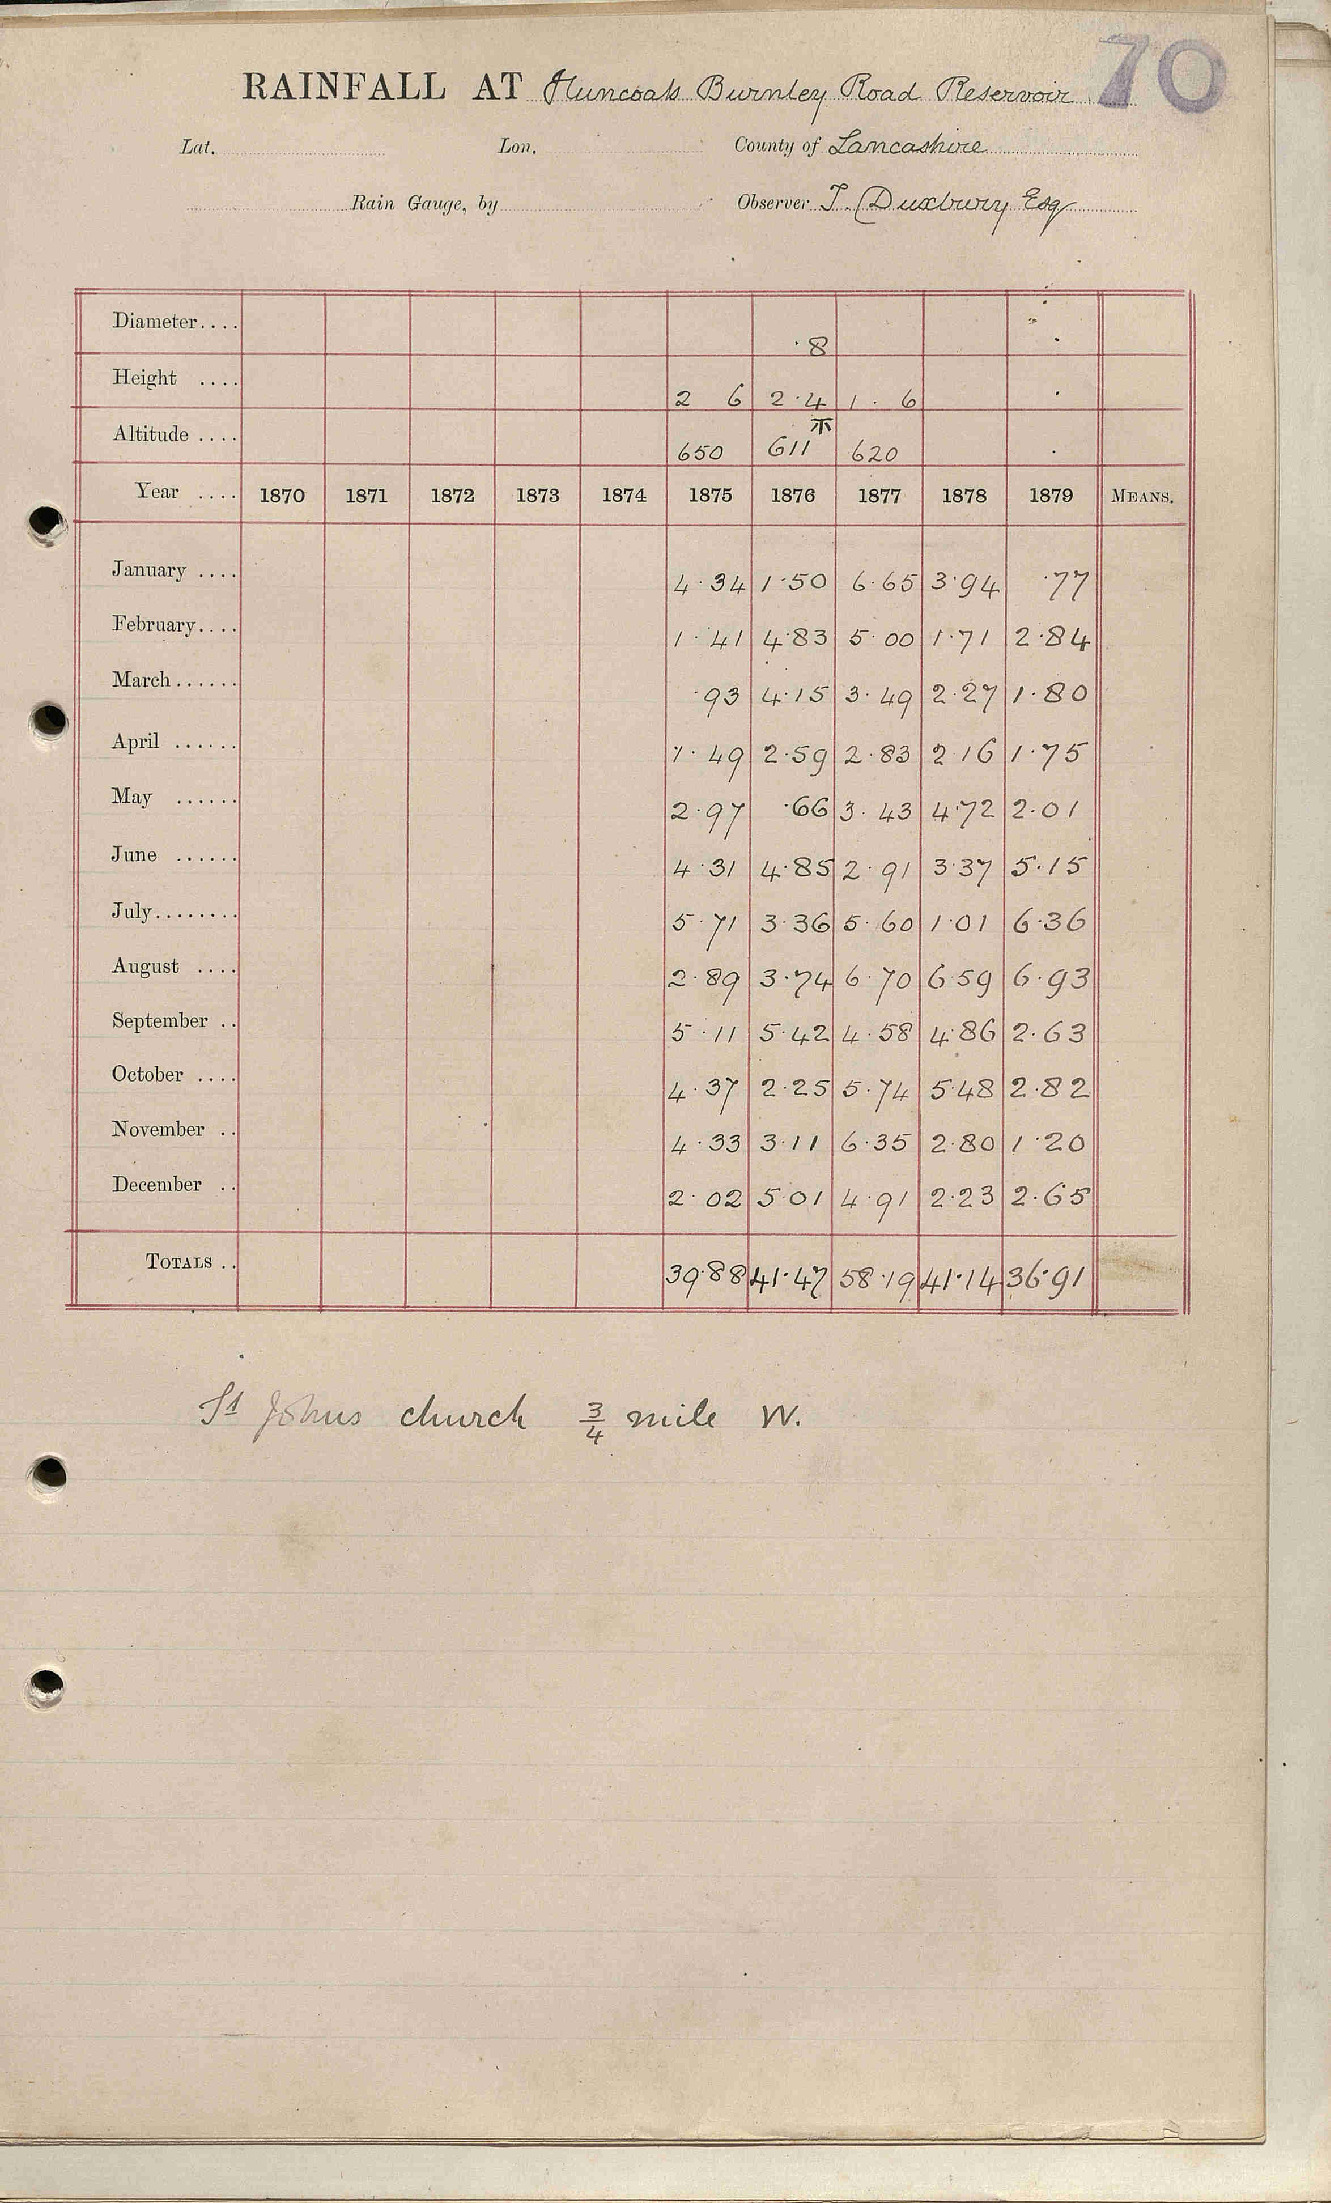 70
RAINFALL AT Huncoats Burnley Road Reservoir
Lat. Lon. County of Lancashire
Rain Gauge, by Observer T. Duxbury Esq
Diameter.... ·8
Height .... 2 6 2·4 1· 6
Altitude .... 650 611 620
Year .... 1870 1871 1872 1873 1874 1875 1876 1877 1878 1879 MEANS.
January .... 4·34 1·50 6·65 3·94 ·77
February.... 1·41 4·83 5·00 1·71 2·84
March...... ·93 4·15 3·49 2·27 1·80
April ...... 1·49 2·59 2·83 2·16 1·75
May ...... 2·97 ·66 3·43 4·72 2·01
June ...... 4·31 4·85 2·91 3·37 5·15
July........ 5·71 3·36 5·60 1·01 6·36
August .... 2·89 3·74 6·70 6·59 6·93
September .. 5·11 5·42 4·58 4·86 2·63
October .... 4·37 2·25 5·74 5·48 2·82
November .. 4·33 3·11 6·35 2·80 1·20
December .. 2·02 5·01 4·91 2·23 2·65
TOTALS .. 39·88 41·47 58·19 41·14 36·91
St Johns church 3/4 mile W.